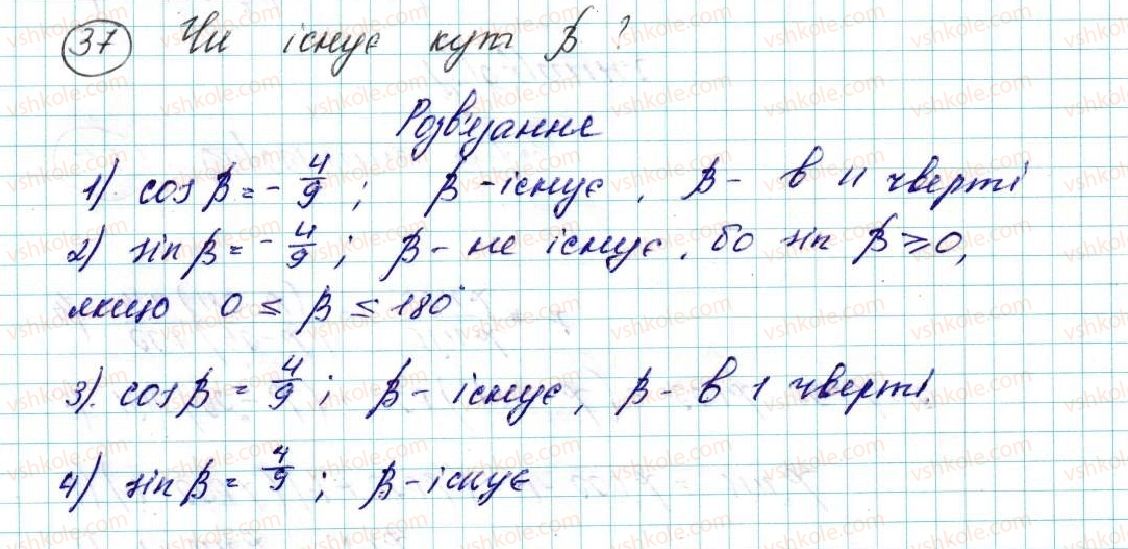 37 Чи існує кут β?
Розв'язання
1). cos β = - 4/9; β - існує, β - в II чверті
2) sin β = - 4/9; β - не існує, бо sin β ≥ 0,
якщо 0 ≤ β ≤ 180°
3). cos β = 4/9; β - існує, β - в I чверті.
4) sin β = 4/9; β - існує